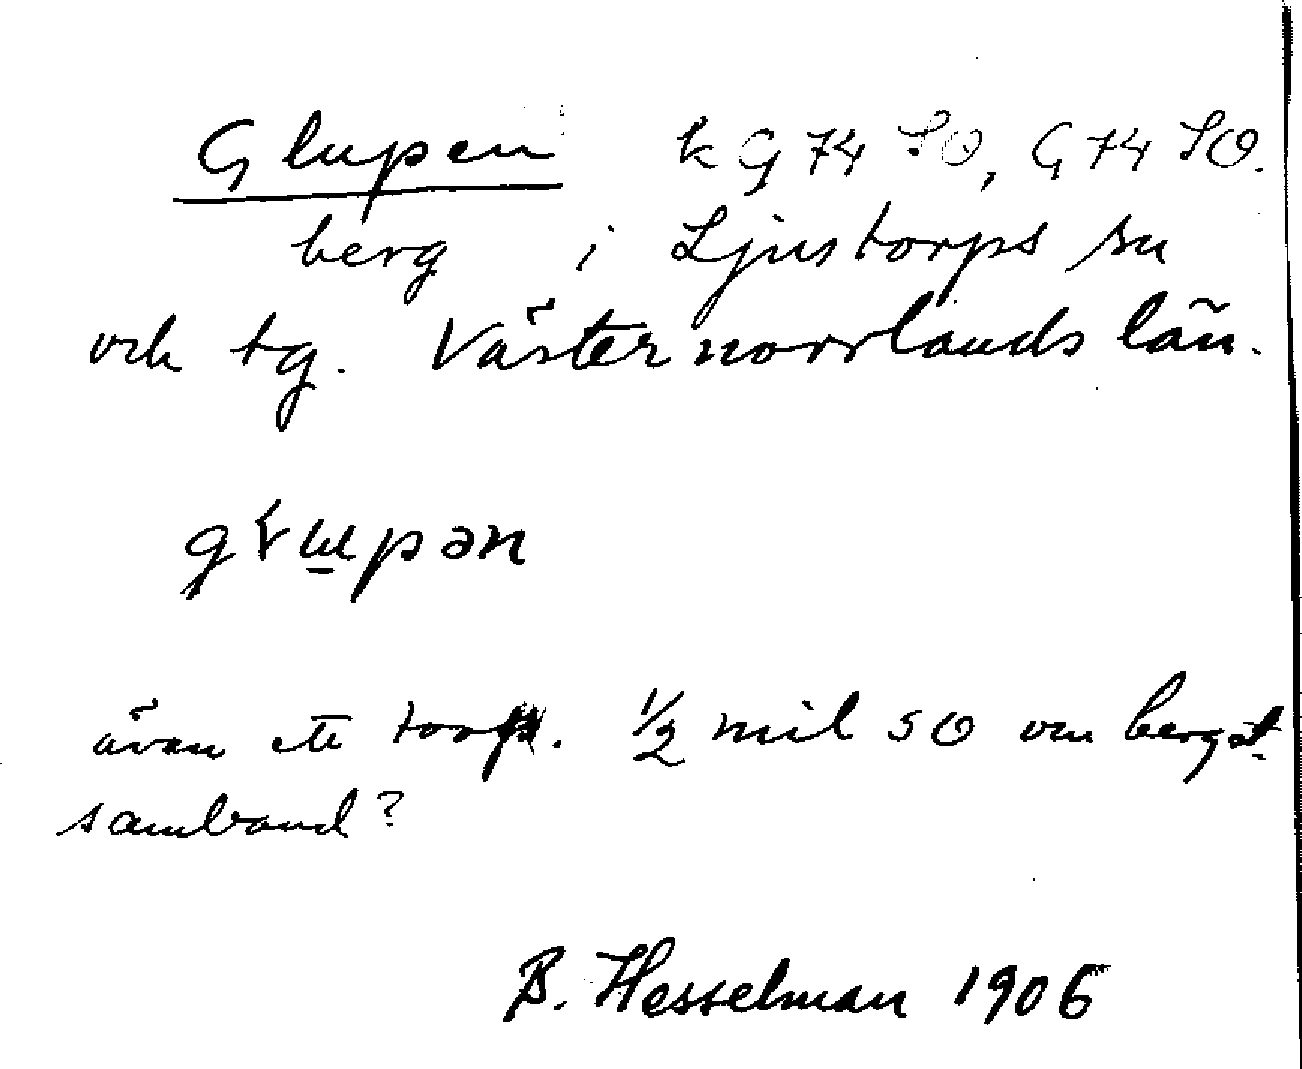 Glupen k G 74 SO, G 74 SO.
berg i Ljustorps sn
och tg. Västernorrlands län.
även ett torp. ½ mil SO om berget.
samband?
B. Hesselman 1906